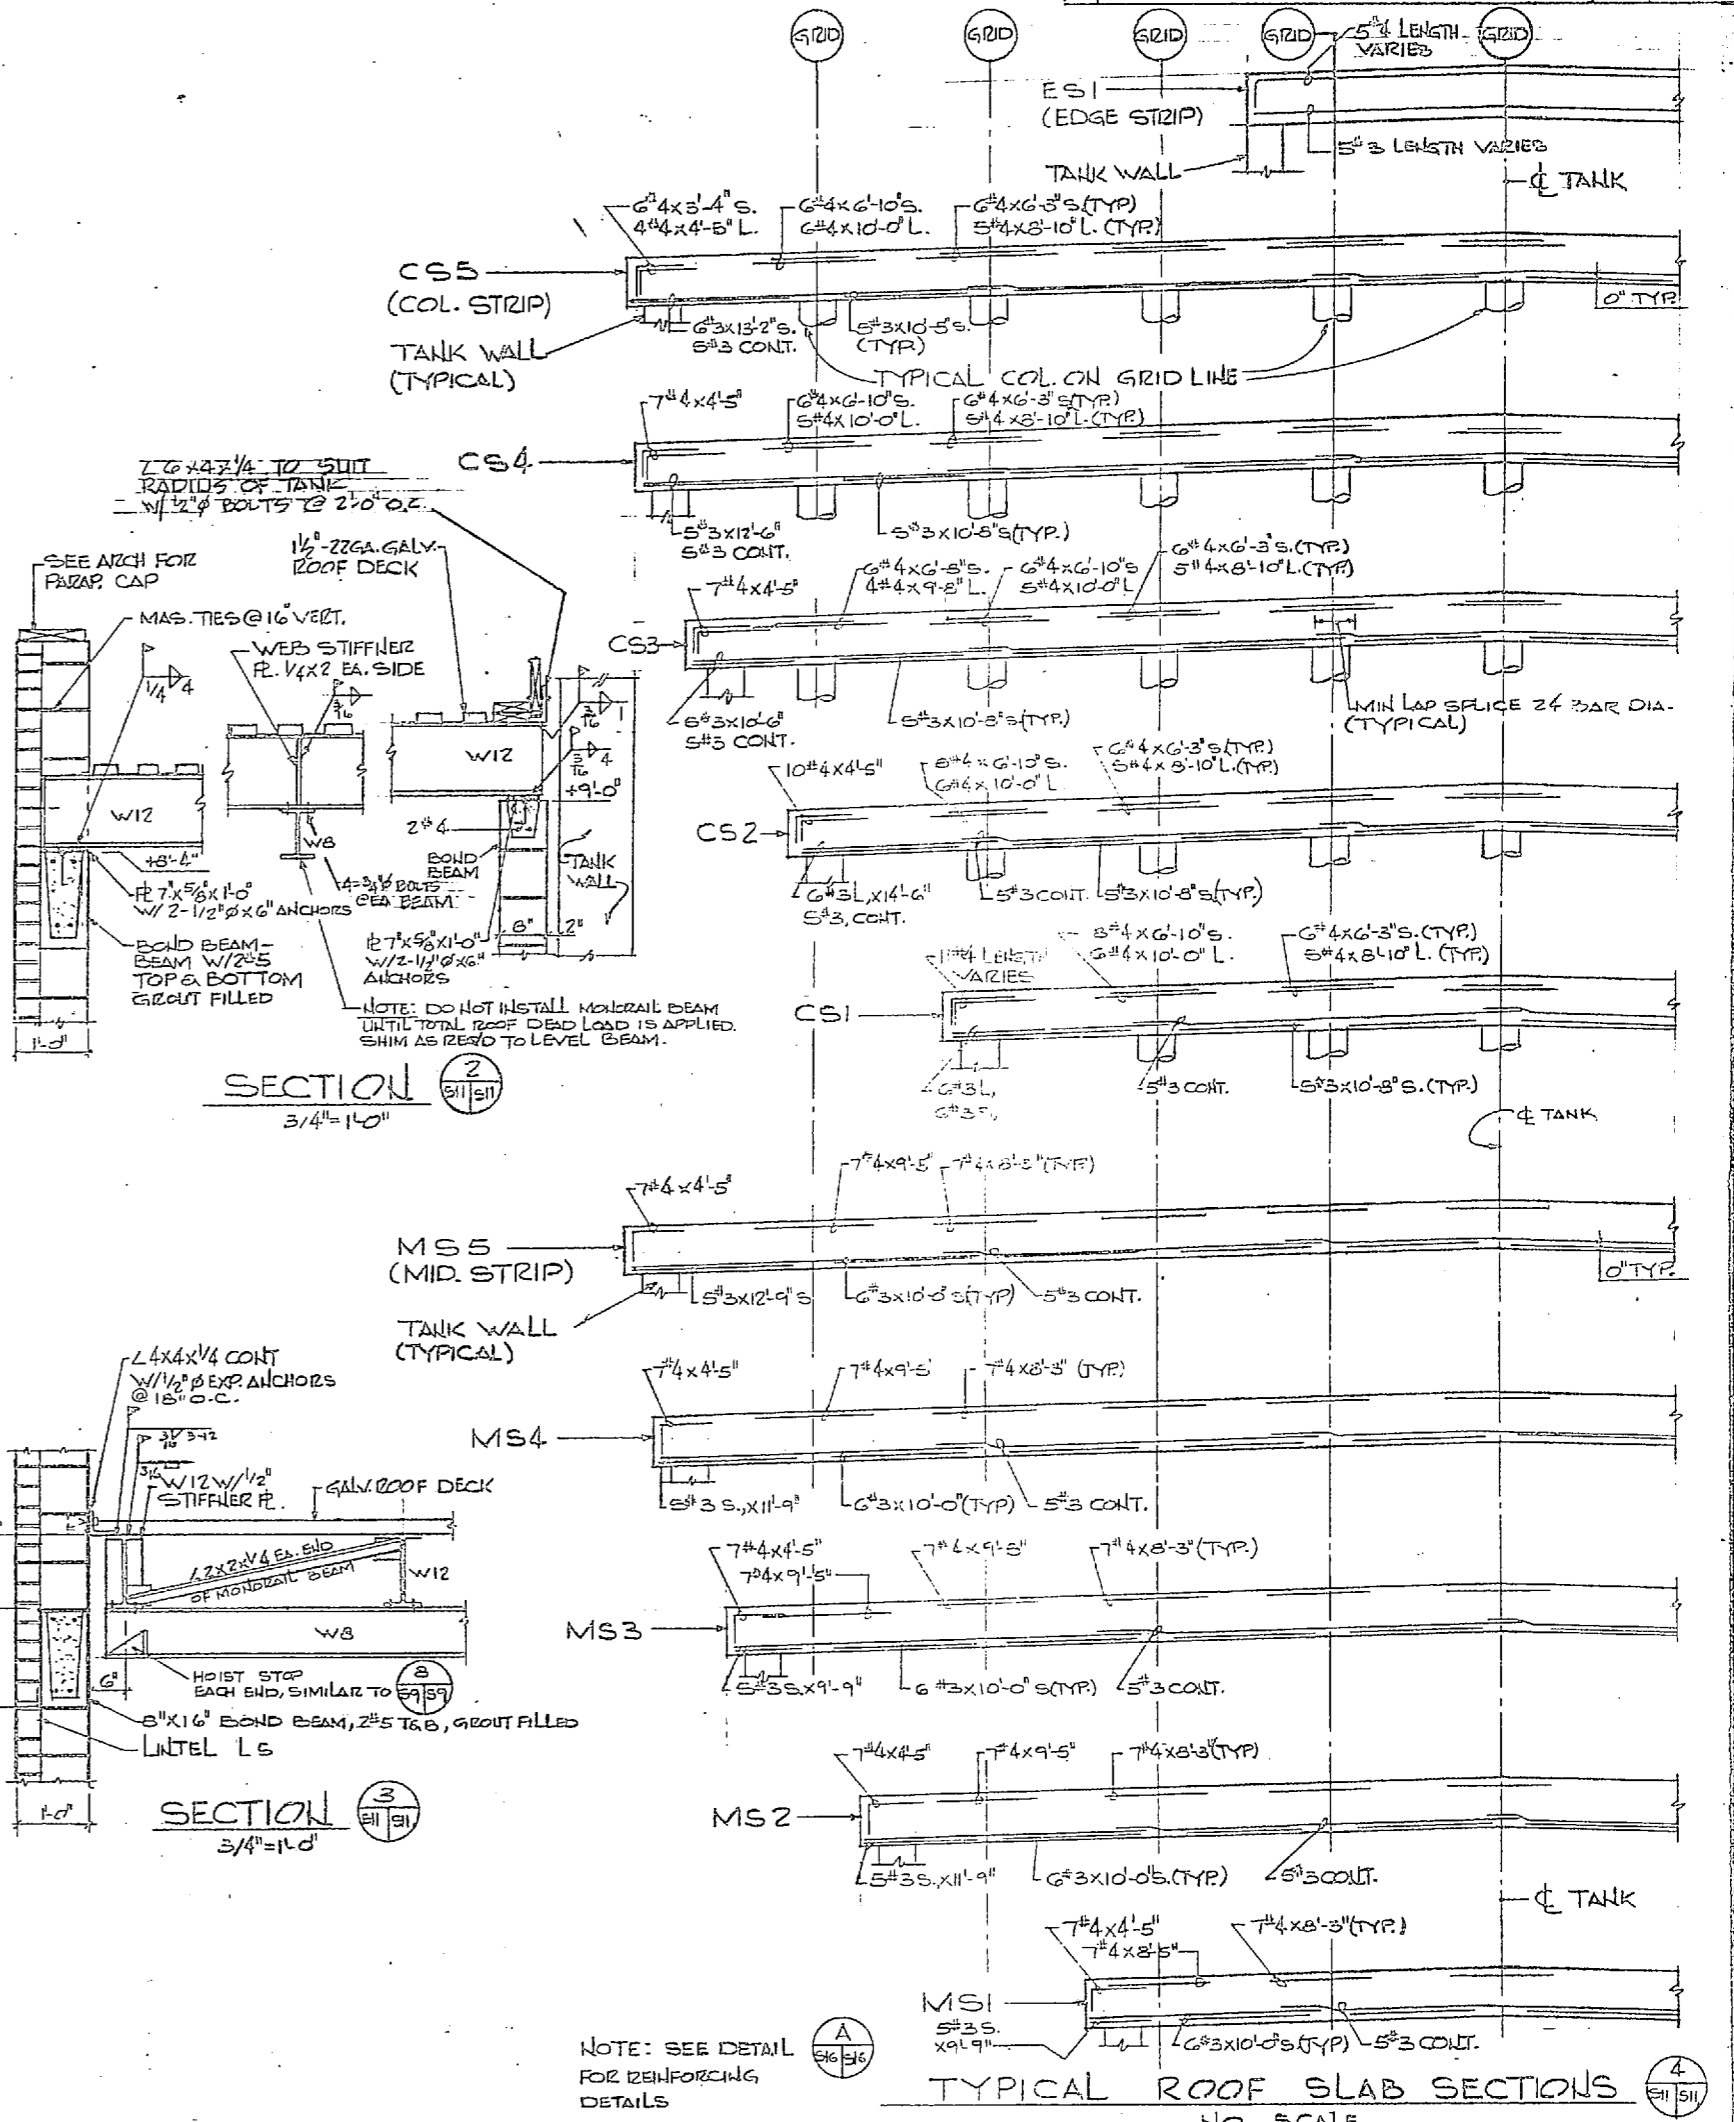 GRID
GRID
GRID
GRID
GRID
5#4 LENGTH
VARIES
ES1
(EDGE STRIP)
5#3 LENGTH VARIES
TANK WALL
℄ TANK
6#4x3'-4" S.
4#4x4'-5" L.
6#4x6'-10" S.
6#4x10'-0" L.
6#4x6'-3" S (TYP)
5#4x8'-10" L. (TYP.)
CS5
(COL. STRIP)
0" TYP.
TANK WALL
(TYPICAL)
6#3x13'-2" S.
5#3 CONT.
5#3x10'-5" S.
(TYP.)
TYPICAL COL. ON GRID LINE
7#4x4'-5"
6#4x6'-10" S.
5#4x10'-0" L.
6#4x6'-3" S (TYP.)
5#4x8'-10" L. (TYP.)
CS4
5#3x12'-6"
5#3 CONT.
5#3x10'-8" S (TYP.)
7#4x4'-5"
6#4x6'-8" S.
4#4x9'-8" L.
6#4x6'-10" S
5#4x10'-0" L
6#4x6'-3" S. (TYP.)
5#4x8'-10" L. (TYP.)
CS3
5#3x10'-6"
5#3 CONT.
5#3x10'-8" S (TYP.)
MIN LAP SPLICE 24 BAR DIA.
(TYPICAL)
10#4x4'-5"
8#4x6'-10" S.
6#4x10'-0" L
6#4x6'-3" S (TYP.)
5#4x8'-10" L. (TYP.)
CS2
6#3 L, x14'-6"
5#3, CONT.
5#3 CONT.
5#3x10'-8" S (TYP.)
11#4 LENGTH
VARIES
8#4x6'-10" S.
6#4x10'-0" L.
6#4x6'-3" S. (TYP.)
5#4x8'-10" L. (TYP.)
CS1
6#3 L,
6#3 S,
5#3 CONT.
5#3x10'-8" S. (TYP.)
℄ TANK
7#4x4'-5"
7#4x9'-5"
7#4x8'-3" (TYP.)
MS5
(MID. STRIP)
0" TYP.
5#3x12'-9" S
6#3x10'-0" S (TYP)
5#3 CONT.
TANK WALL
(TYPICAL)
7#4x4'-5"
7#4x9'-5"
7#4x8'-3" (TYP.)
MS4
5#3 S., x11'-9"
6#3x10'-0" (TYP)
5#3 CONT.
7#4x4'-5"
7#4x9'-5"
7#4x9'-5"
7#4x8'-3" (TYP.)
MS3
5#3 S. x9'-9"
6 #3x10'-0" S (TYP.)
5#3 CONT.
7#4x4'-5"
7#4x9'-5"
7#4x8'-3" (TYP)
MS2
5#3 S., x11'-9"
6#3x10'-0 S. (TYP.)
5#3 CONT.
℄ TANK
7#4x4'-5"
7#4x8'-5"
7#4x8'-3" (TYP.)
MS1
5#3 S.
x9'-9"
6#3x10'-0" S (TYP)
5#3 CONT.
TYPICAL ROOF SLAB SECTIONS
4
S11 S11
NO SCALE
NOTE: SEE DETAIL
FOR REINFORCING
DETAILS
A
S16 S16
L 6x4x1/4 TO SUIT
RADIUS OF TANK
W/ 1/2"Ø BOLTS @ 2'-0" O.C.
SEE ARCH FOR
PARAP. CAP
1½"-22GA. GALV.
ROOF DECK
MAS. TIES @ 16" VERT.
WEB STIFFNER
PL. 1/4x2 EA. SIDE
1/4
4
3/16
3/16
1
3/16
4
W12
W12
+9'-0"
2#4
W8
+8'-4"
BOND
BEAM
TANK
WALL
PL 7"x5/8x1'-0"
W/ 2-1/2"Øx6" ANCHORS
4-3/4"Ø BOLTS
@ EA BEAM
8"
2"
PL 7"x5/8"x1'-0"
W/2-1/2"Øx6"
ANCHORS
BOND BEAM-
BEAM W/2#5
TOP & BOTTOM
GROUT FILLED
NOTE: DO NOT INSTALL MONORAIL BEAM
UNTIL TOTAL ROOF DEAD LOAD IS APPLIED.
SHIM AS REQ'D TO LEVEL BEAM.
1'-0"
SECTION
2
S11 S11
3/4"=1'-0"
L 4x4x1/4 CONT
W/1/2"Ø EXP. ANCHORS
@ 18" O.C.
3/16
3-12
3/16
W12 W/1/2"
STIFFNER PL.
GALV. ROOF DECK
L 2x2x1/4 EA. END
OF MONORAIL BEAM
W12
W8
6"
HOIST STOP
EACH END, SIMILAR TO
8
S9 S9
8"X16" BOND BEAM, 2#5 T&B, GROUT FILLED
LINTEL L5
1'-0"
SECTION
3
S11 S11
3/4"=1'-0"